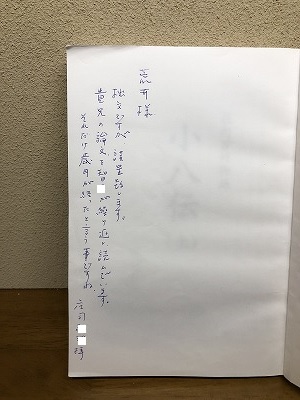 荒井様
拙文ですが 謹呈致します。
貴兄の論文を智が繰り返し読んでいます。
それだけ歳月が経ったと言う事ですね。
庄司 様